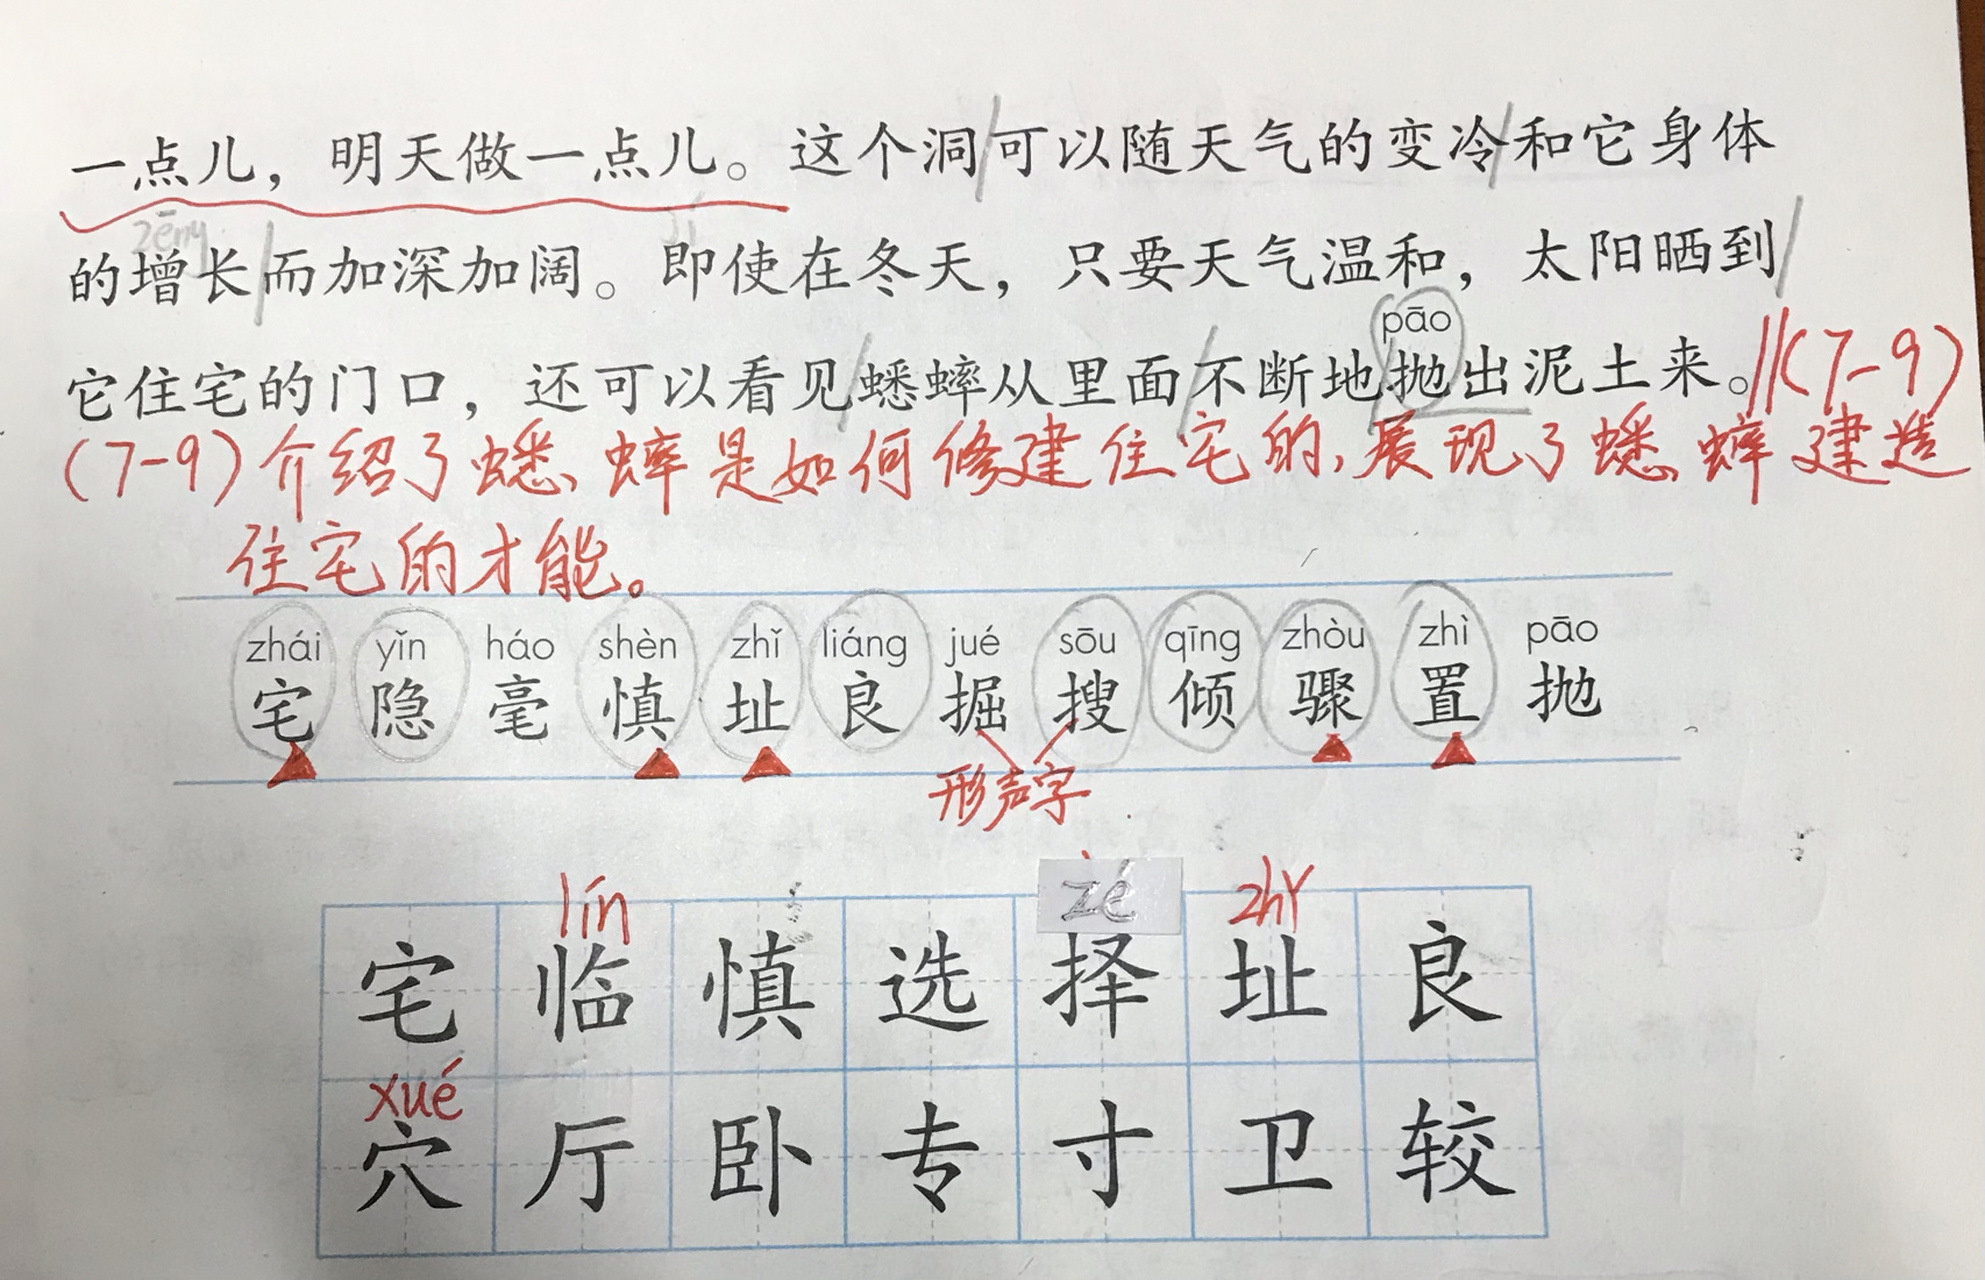 一点儿，明天做一点儿。这个洞可以随天气的变冷和它身体
zēng
的增长而加深加阔。即使在冬天，只要天气温和，太阳晒到
pāo
它住宅的门口，还可以看见蟋蟀从里面不断地抛出泥土来。//(7-9)
(7-9)介绍了蟋蟀是如何修建住宅的,展现了蟋蟀建造
住宅的才能。
zhái yǐn háo shèn zhǐ liáng jué sōu qīng zhòu zhì pāo
宅 隐 毫 慎 址 良 掘 搜 倾 骤 置 抛
形声字
lín zé zhǐ
宅 临 慎 选 择 址 良
xué
穴 厅 卧 专 寸 卫 较